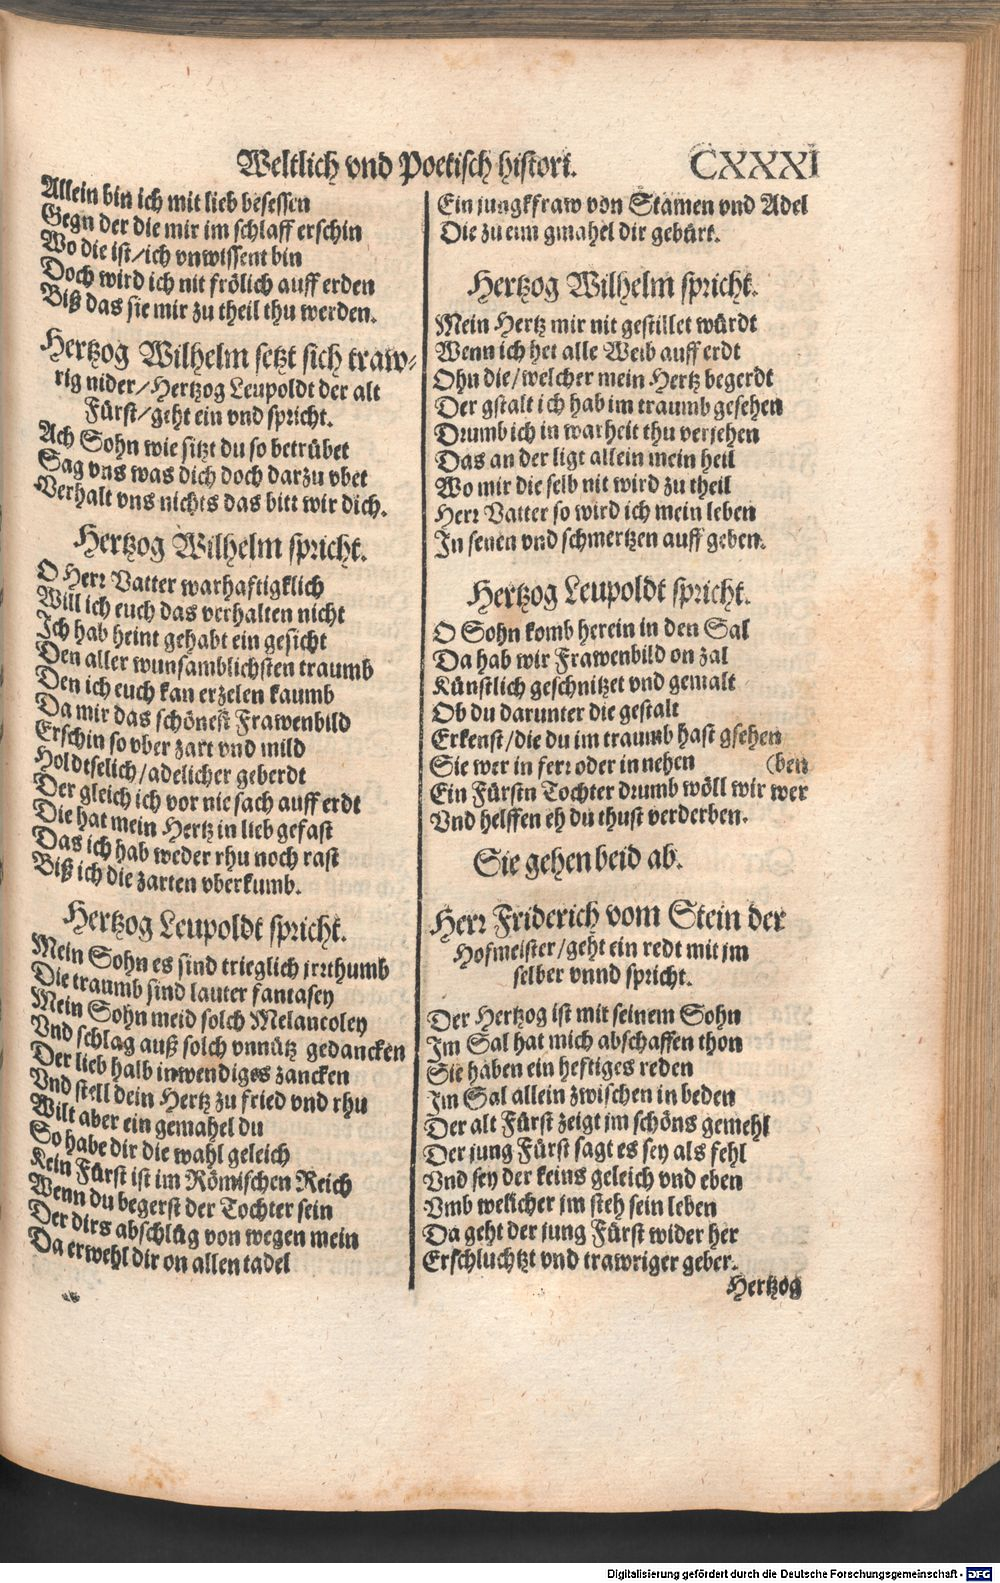 Weltlich vnd Poetisch histori. CXXXI
Allein bin ich mit lieb besessen
Gegn der die mir im schlaff erschin
Wo die ist/ich vnwissent bin
Doch wird ich nit frölich auff erden
Biß das sie mir zu theil thu werden.
Hertzog Wilhelm setzt sich traw⸗
rig nider/Hertzog Leupoldt der alt
Fürst/geht ein vnd spricht.
Ach Sohn wie sitzt du so betrübet
Sag vns was dich doch darzu vbet
Verhalt vns nichts das bitt wir dich.
Hertzog Wilhelm spricht.
O Herr Vatter warhaftigklich
Will ich euch das verhalten nicht
Ich hab heint gehabt ein gesicht
Den aller wunsamblichsten traumb
Den ich euch kan erzelen kaumb
Da mir das schönest Frawenbild
Erschin so vber zart vnd mild
Holdtselich/adelicher geberdt
Der gleich ich vor nie sach auff erdt
Die hat mein Hertz in lieb gefast
Das ich hab weder rhu noch rast
Biß ich die zarten vberkumb.
Hertzog Leupoldt spricht.
Mein Sohn es sind trieglich jrrthumb
Die traumb sind lauter fantasey
Mein Sohn meid solch Melancoley
Vnd schlag auß solch vnnütz gedancken
Der lieb halb inwendiges zancken
Vnd stell dein Hertz zu fried vnd rhu
Wilt aber ein gemahel du
So habe dir die wahl geleich
Kein Fürst ist im Römischen Reich
Wenn du begerst der Tochter sein
Der dirs abschlüg von wegen mein
Da erwehl dir on allen tadel
Ein jungkfraw von Stamen vnd Adel
Die zu eim gmahel dir gebürt.
Hertzog Wilhelm spricht.
Mein Hertz mir nit gestillet würdt
Wenn ich het alle Weib auff erdt
Ohn die/welcher mein Hertz begerdt
Der gstalt ich hab im traumb gesehen
Drumb ich in warheit thu verjehen
Das an der ligt allein mein heil
Wo mir die selb nit wird zu theil
Herr Vatter so wird ich mein leben
In senen vnd schmertzen auff geben.
Hertzog Leupoldt spricht.
O Sohn komb herein in den Sal
Da hab wir Frawenbild on zal
Künstlich geschnitzet vnd gemalt
Ob du darunter die gestalt
Erkenst/die du im traumb hast gsehen
Sie wer in ferr oder in nehen (ben
Ein Fürstn Tochter drumb wöll wir wer
Vnd helffen eh du thust verderben.
Sie gehen beid ab.
Herr Friderich vom Stein der
Hofmeister/geht ein redt mit jm
selber vnnd spricht.
Der Hertzog ist mit seinem Sohn
Im Sal hat mich abschaffen thon
Sie haben ein heftiges reden
Im Sal allein zwischen in beden
Der alt Fürst zeigt im schöns gemehl
Der jung Fürst sagt es sey als fehl
Vnd sey der keins geleich vnd eben
Vmb welicher jm steh sein leben
Da geht der jung Fürst wider her
Erschluchtzt vnd trawriger geber.
Hertzog
Digitalisierung gefördert durch die Deutsche Forschungsgemeinschaft - DFG